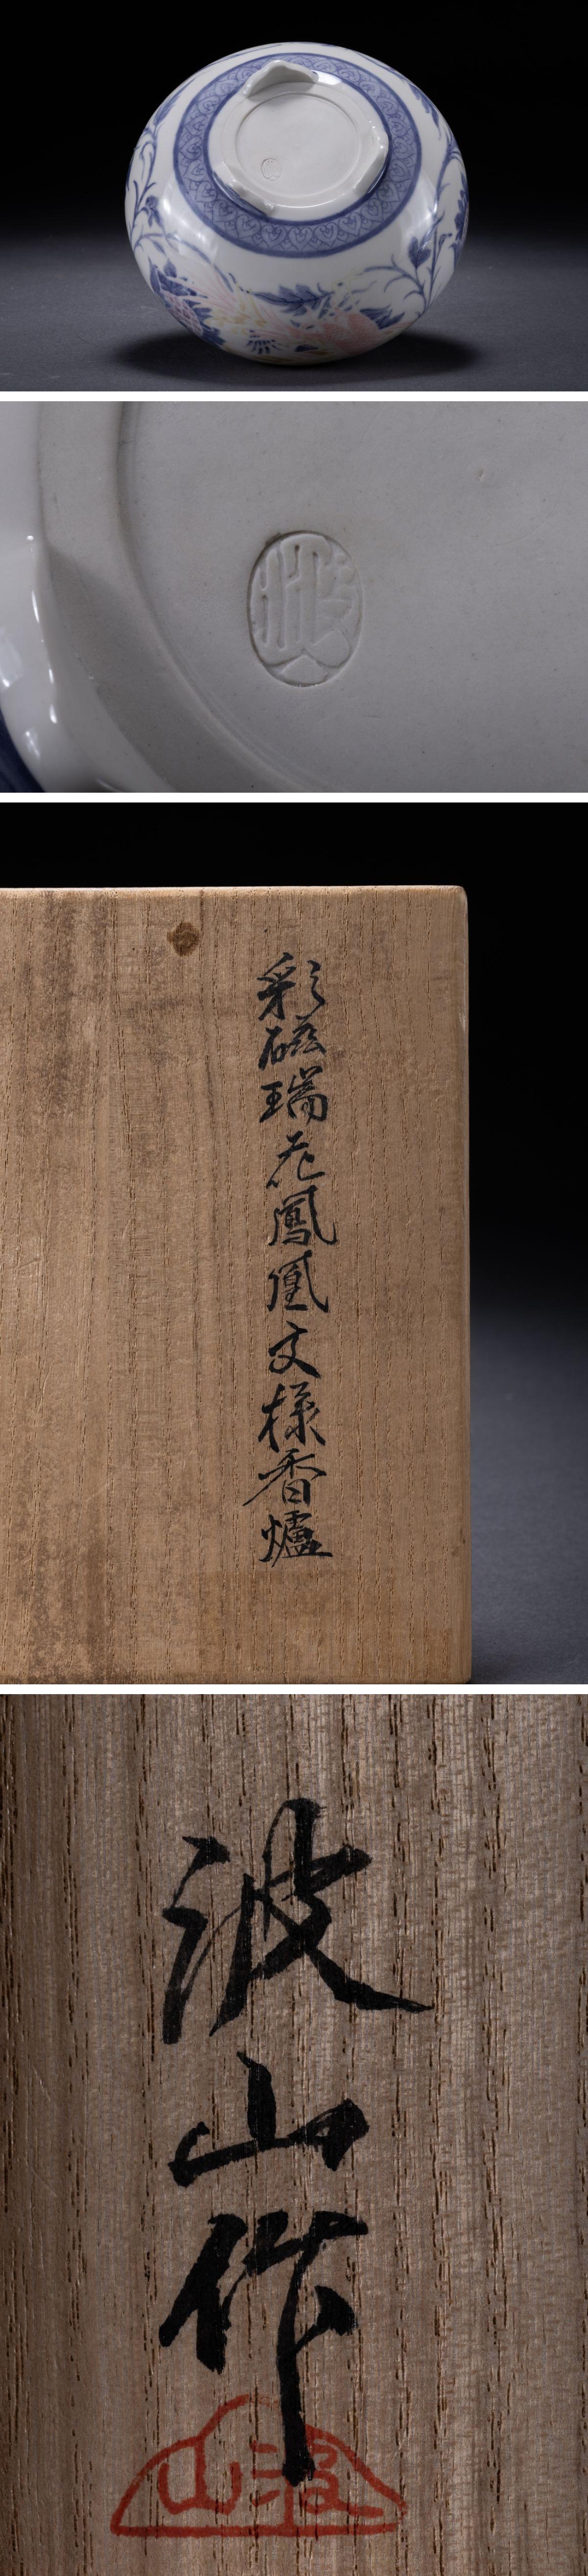 彩磁瑞花鳳凰文様香爐
波山作
波山